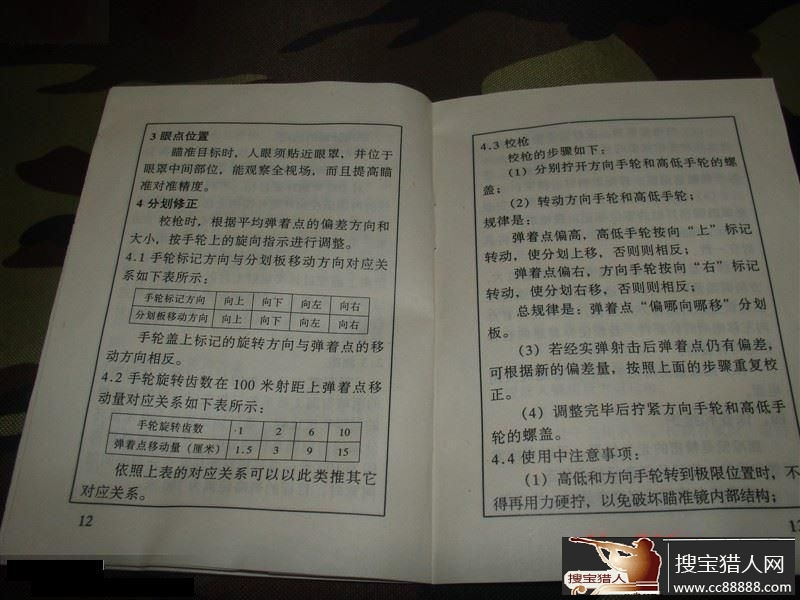 3 眼点位置
瞄准目标时，人眼须贴近眼罩，并位于
眼罩中间部位，能观察全视场，而且提高瞄
准对准精度。
4 分划修正
校枪时，根据平均弹着点的偏差方向和
大小，按手轮上的旋向指示进行调整。
4.1 手轮标记方向与分划板移动方向对应关
系如下表所示：
手轮标记方向 向上 向下 向左 向右
分划板移动方向 向上 向下 向左 向右
手轮盖上标记的旋转方向与弹着点的移
动方向相反。
4.2 手轮旋转齿数在 100 米射距上弹着点移
动量对应关系如下表所示：
手轮旋转齿数 1 2 6 10
弹着点移动量（厘米） 1.5 3 9 15
依照上表的对应关系可以以此类推其它
对应关系。
12
4.3 校枪
校枪的步骤如下：
（1）分别拧开方向手轮和高低手轮的螺
盖；
（2）转动方向手轮和高低手轮；
规律是：
弹着点偏高，高低手轮按向“上”标记
转动，使分划上移，否则则相反；
弹着点偏右，方向手轮按向“右”标记
转动，使分划右移，否则则相反；
总规律是：弹着点“偏哪向哪移”分划
板。
（3）若经实弹射击后弹着点仍有偏差，
可根据新的偏差量，按照上面的步骤重复校
正。
（4）调整完毕后拧紧方向手轮和高低手
轮的螺盖。
4.4 使用中注意事项：
（1）高低和方向手轮转到极限位置时，不
得再用力硬拧，以免破坏瞄准镜内部结构；
搜宝猎人
搜宝猎人网
www.cc88888.com